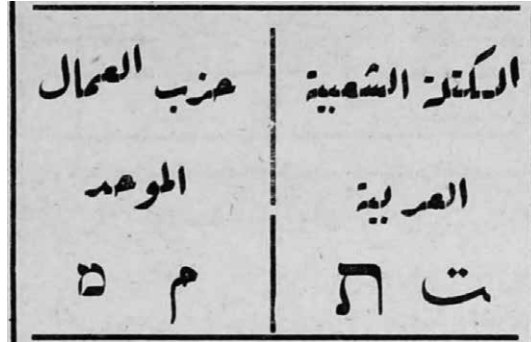 الكتلة الشعبية
العربية
ת ت
حزب العمال
الموحد
م מ